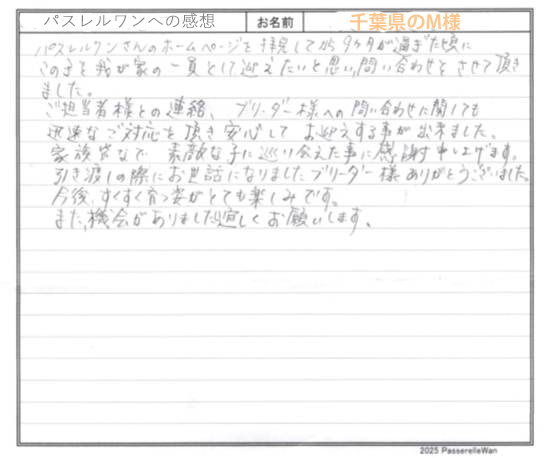 パスレルワンへの感想
お名前
千葉県のM様
パスレルワンさんのホームページを拝見してから9ヶ月が過ぎた頃に
この子を我が家の一員として迎えたいと思い、問い合わせをさせて頂き
ました。
ご担当者様との連絡、ブリーダー様への問い合わせに関しても
迅速なご対応を頂き安心してお迎えする事が出来ました。
家族皆なで素敵な子に巡り会えた事に感謝申し上げます。
引き渡しの際にお世話になりましたブリーダー様ありがとうございました。
今後、すくすく育つ姿がとても楽しみです。
また、機会がありました宜しくお願いします。
2025 PasserelleWan